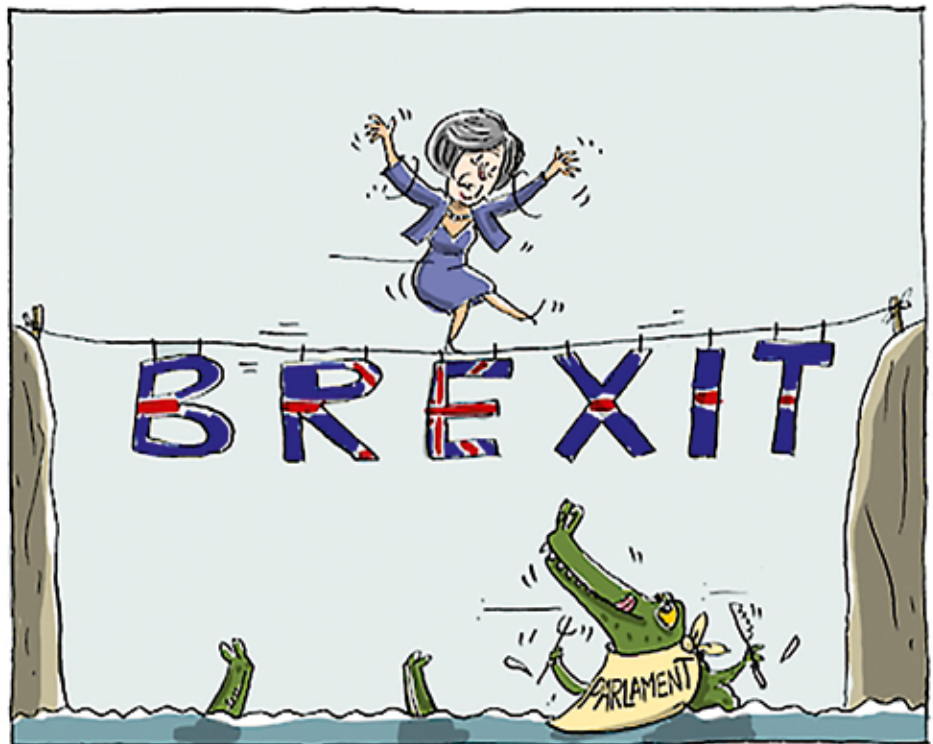 BREXIT
PARLAMENT